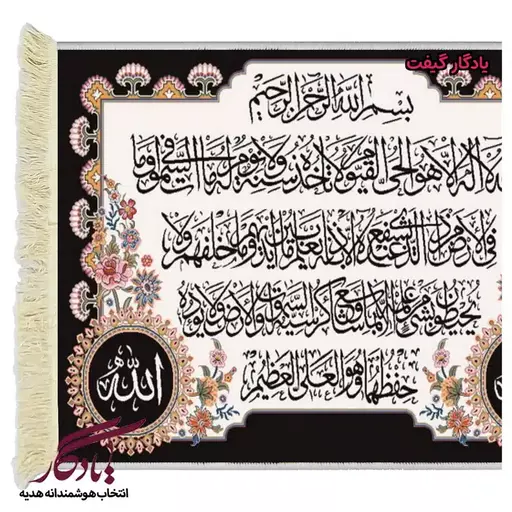 یادگار گیفت
بسم الله الرحمن الرحیم
الله لا اله الا هو الحی القیوم لا تاخذه سنة ولا نوم له ما فی السموات وما
فی الارض من ذا الذی یشفع عنده الا باذنه یعلم ما بین ایدیهم وما خلفهم ولا
یحیطون بشیء من علمه الا بما شاء وسع کرسیه السموات والارض ولا یؤده
حفظهما وهو العلی العظیم
الله
یادگار
انتخاب هوشمندانه هدیه